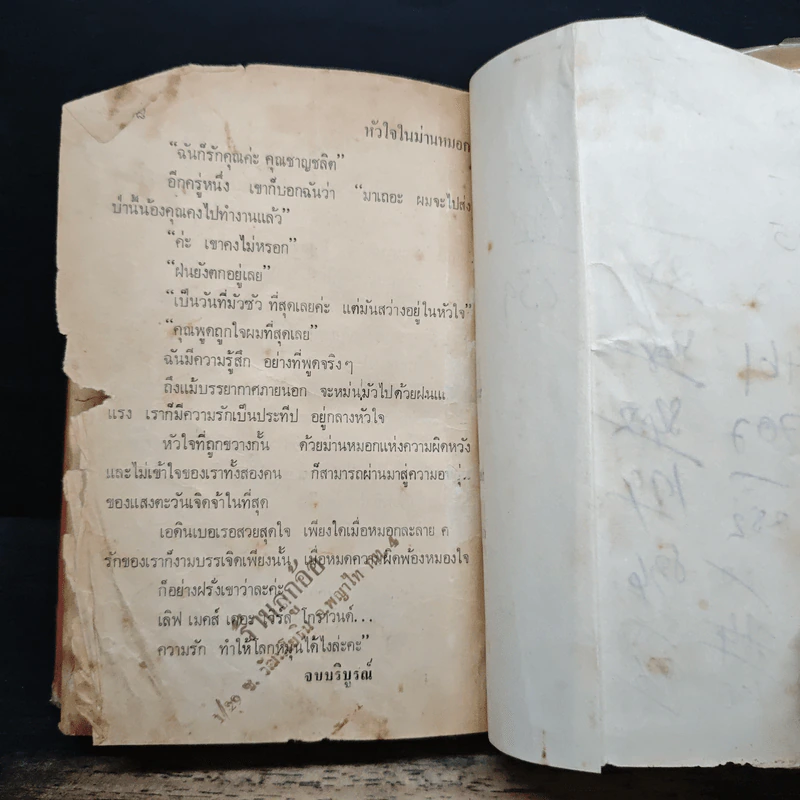 ๘
หัวใจในม่านหมอก
“ฉันก็รักคุณค่ะ คุณชาญชลิต”
อีกครู่หนึ่ง เขาก็บอกฉันว่า “มาเถอะ ผมจะไปส่ง
ป่านี้น้องคุณคงไปทำงานแล้ว”
“ค่ะ เขาคงไม่หรอก”
“ฝนยังตกอยู่เลย”
“เป็นวันที่มัวซัว ที่สุดเลยค่ะ แต่มันสว่างอยู่ในหัวใจ”
“คุณพูดถูกใจผมที่สุดเลย”
ฉันมีความรู้สึก อย่างที่พูดจริงๆ
ถึงแม้บรรยากาศภายนอก จะหม่นมัวไปด้วยฝน
แรง เราก็มีความรักเป็นประทีป อยู่กลางหัวใจ
หัวใจที่ถูกขวางกั้น ด้วยม่านหมอกแห่งความผิดหวัง
และไม่เข้าใจของเราทั้งสองคน ก็สามารถผ่านมาสู่ความ
ของแสงตะวันเจิดจ้าในที่สุด
เอดินเบอเรอสวยสุดใจ เพียงใดเมื่อหมอกละลาย ค
รักของเราก็งามบรรเจิดเพียงนั้น เมื่อหมดความผิดพ้องหมองใจ
ก็อย่างฝรั่งเขาว่าละค่ะ
เลิฟ เมคส์ เดอะ เวิร์ลส์ โกราวนด์...
ความรัก ทำให้โลกหมุนได้ไงล่ะคะ”
จบบริบูรณ์
ร้านลูกอ้อย
1/29 ซ. พญาไท กท 4